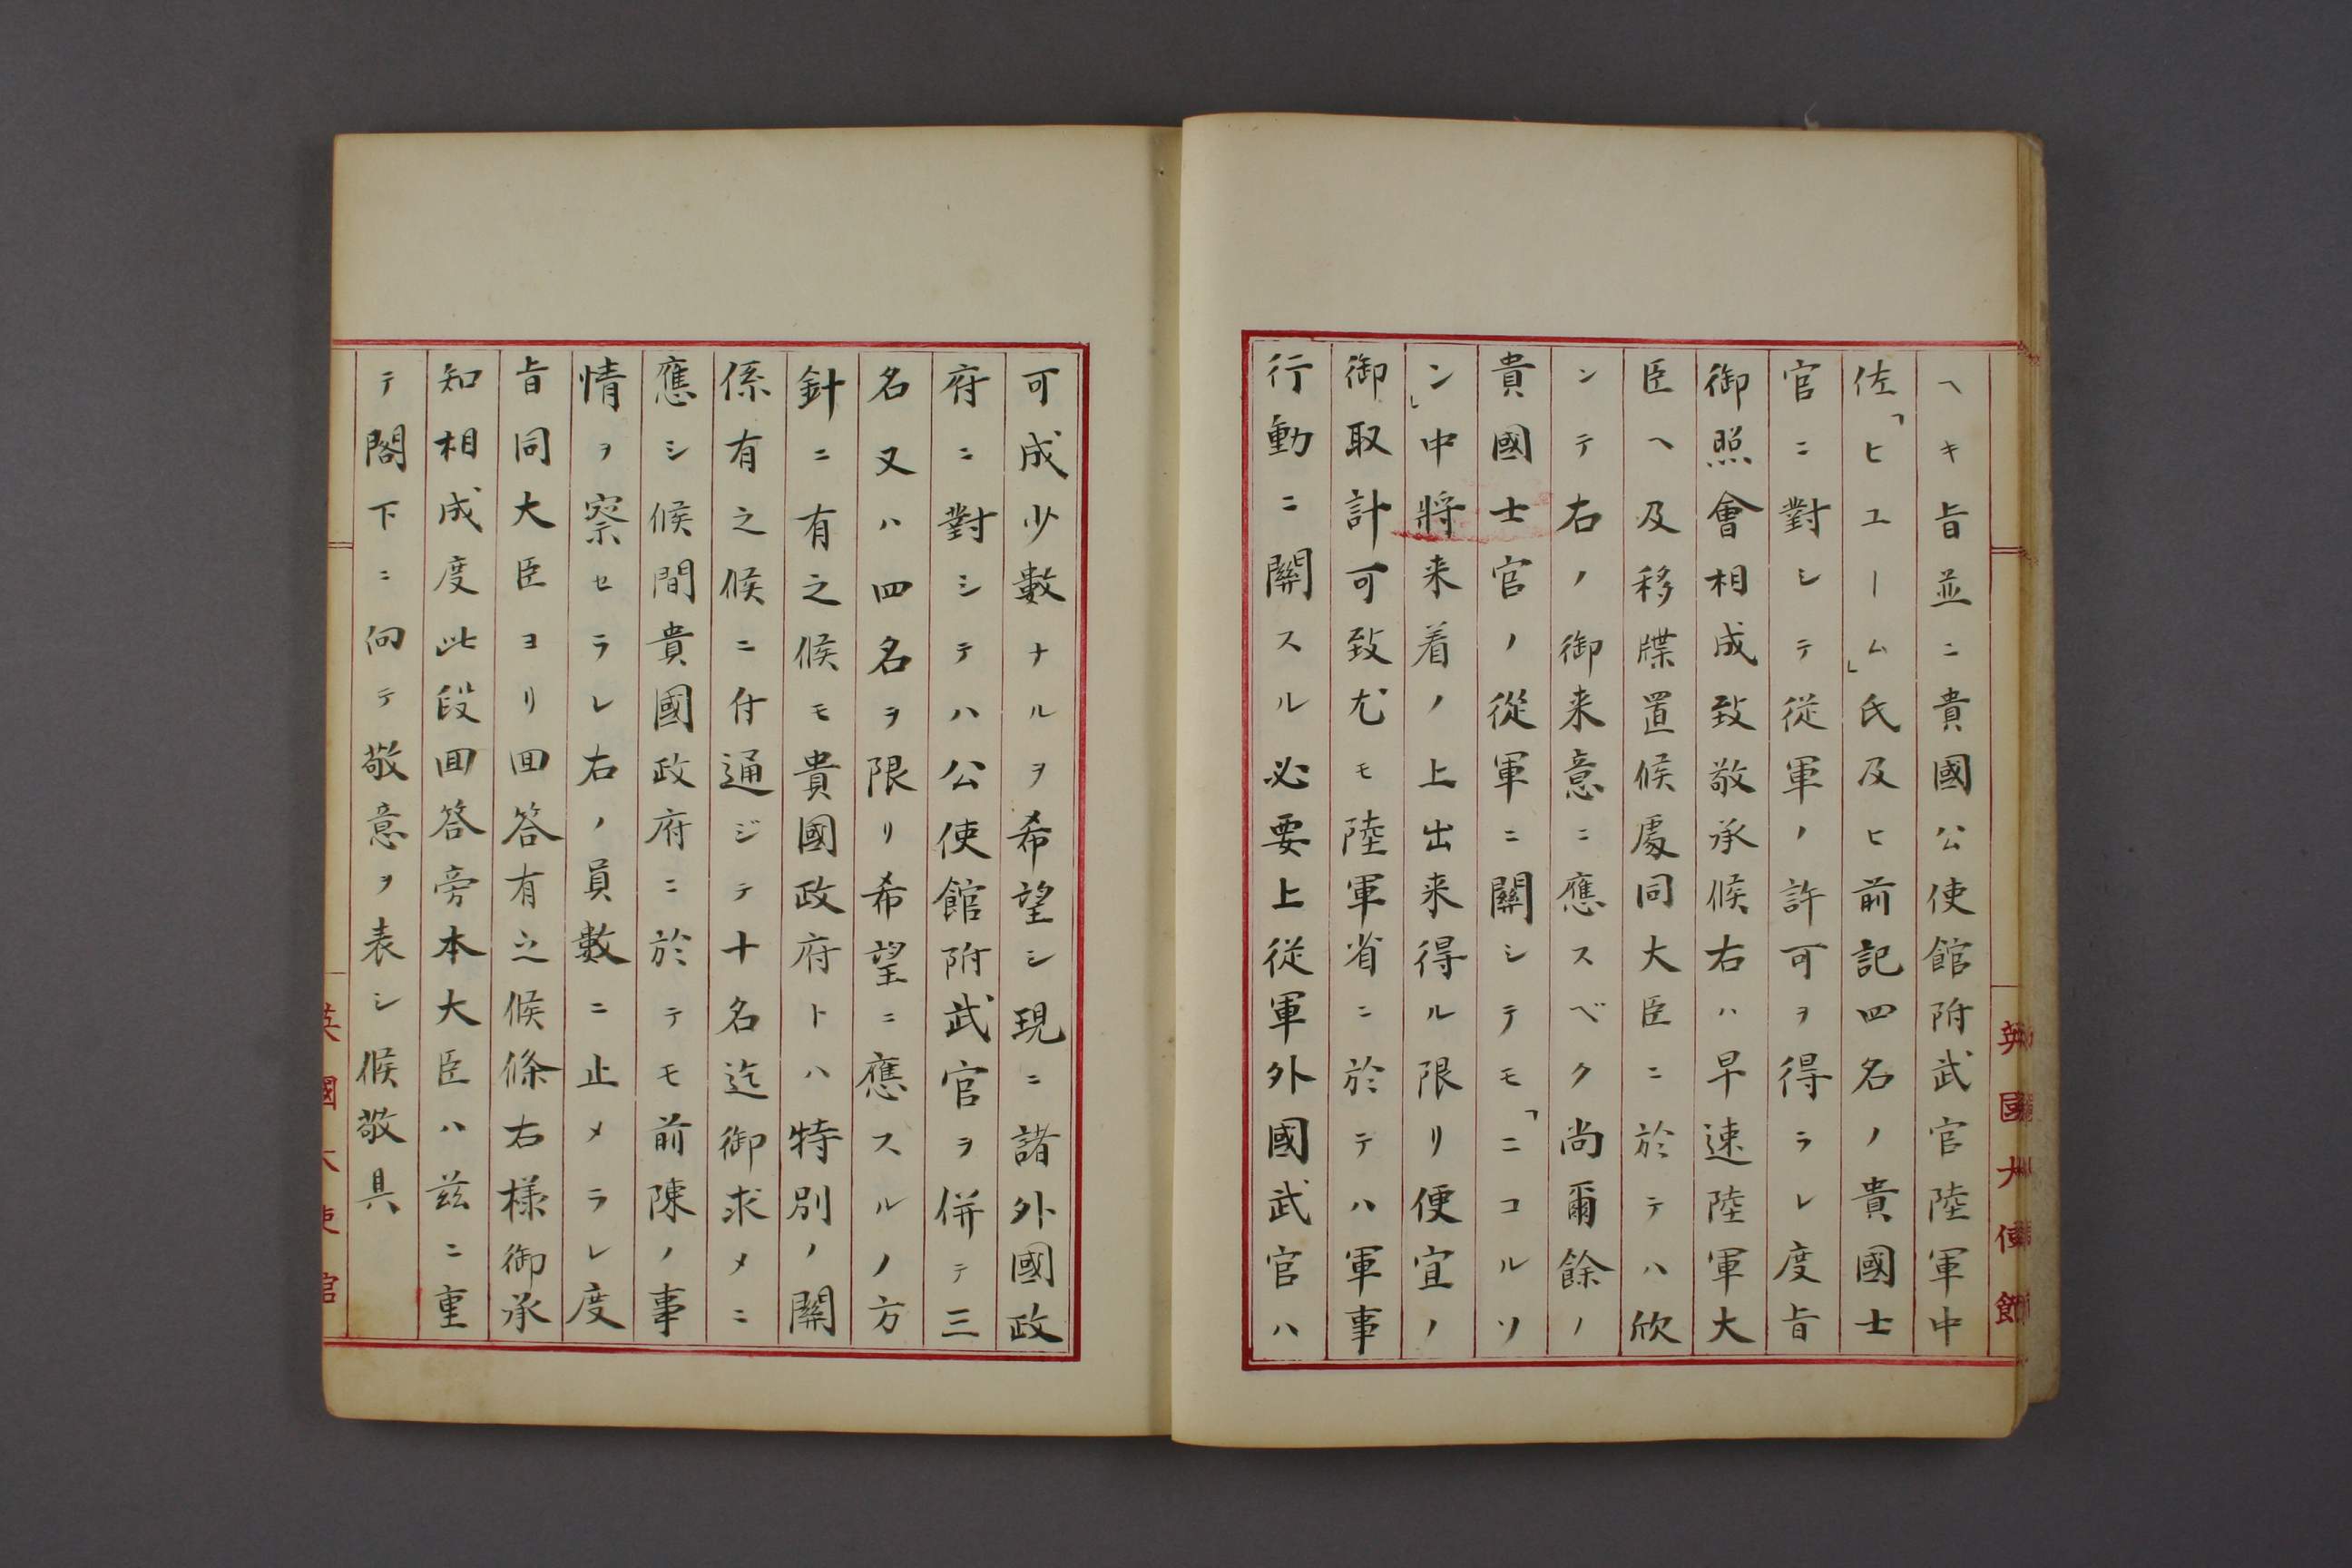 ヘキ旨並ニ貴國公使館附武官陸軍中
佐「ヒユーム」氏及ヒ前記四名ノ貴國士
官ニ對シテ從軍ノ許可ヲ得ラレ度旨
御照會相成致敬承候右ハ早速陸軍大
臣ヘ及移牒置候處同大臣ニ於テハ欣
ンテ右ノ御来意ニ應スベク尚爾餘ノ
貴國士官ノ從軍ニ關シテモ「ニコルソ
ン」中將来着ノ上出来得ル限リ便宜ノ
御取計可致尤モ陸軍省ニ於テハ軍事
行動ニ關スル必要上從軍外國武官ハ
可成少數ナルヲ希望シ現ニ諸外國政
府ニ對シテハ公使館附武官ヲ併テ三
名又ハ四名ヲ限リ希望ニ應スルノ方
針ニ有之候モ貴國政府トハ特別ノ關
係有之候ニ付通ジテ十名迄御求メニ
應シ候間貴國政府ニ於テモ前陳ノ事
情ヲ察セラレ右ノ員數ニ止メラレ度
旨同大臣ヨリ回答有之候條右様御承
知相成度此段回答旁本大臣ハ茲ニ重
テ閣下ニ向テ敬意ヲ表シ候敬具
英國大使館